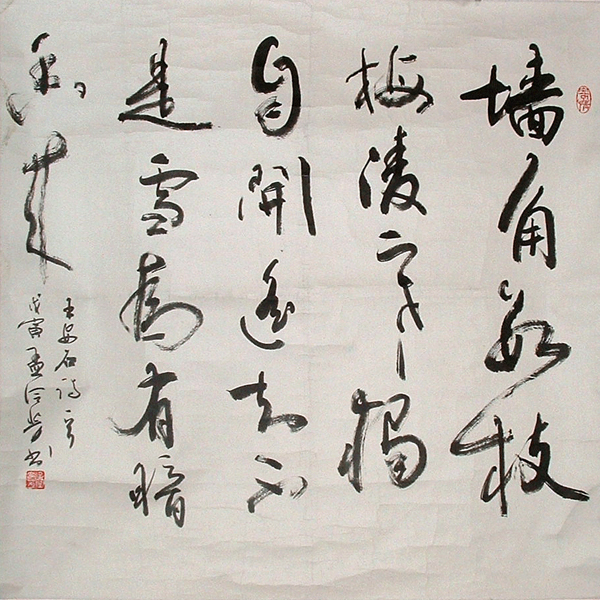 墙角数枝
梅凌寒獨
自開遥知不
是雪為有暗
香来
王安石诗
戊寅孟书